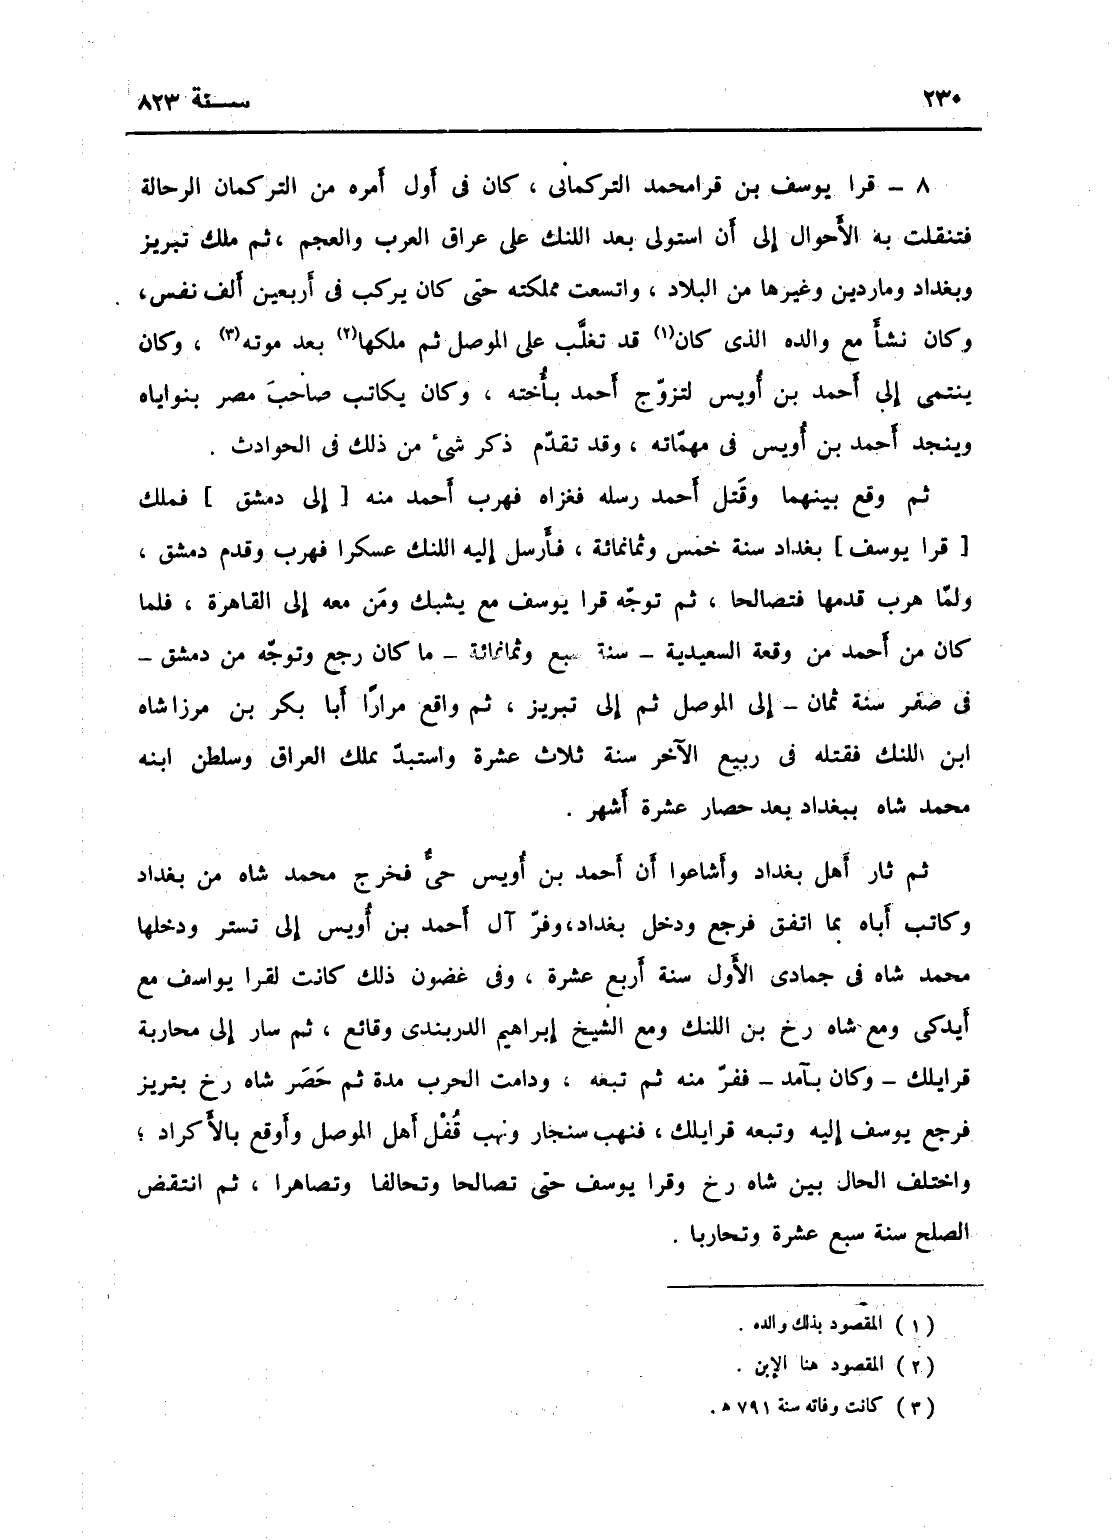 ٢٣٠ سنة ٨٢٣
٨ – قرا يوسف بن قرامحمد التركمانى ، كان فى أول أمره من التركمان الرحالة
فتنقلت به الأحوال إلى أن استولى بعد اللنك على عراق العرب والعجم ، ثم ملك تبريز
وبغداد وماردين وغيرها من البلاد ، واتسعت مملكته حتى كان يركب فى أربعين ألف نفس،
وكان نشأ مع والده الذى كان(١) قد تغلَّب على الموصل ثم ملكها(٢) بعد موته(٣) ، وكان
ينتمى إلى أحمد بن أُويس لتزوّج أحمد بأُخته ، وكان يكاتب صاحبَ مصر بنواياه
وينجد أحمد بن أُويس فى مهمّاته ، وقد تقدّم ذكر شئ من ذلك فى الحوادث .
ثم وقع بينهما وقَتل أحمد رسله فغزاه فهرب أحمد منه [ إلى دمشق ] فملك
[ قرا يوسف ] بغداد سنة خمس وثمانمائة ، فأرسل إليه اللنك عسكرا فهرب وقدم دمشق ،
ولمّا هرب قدمها فتصالحا ، ثم توجّه قرا يوسف مع يشبك ومَن معه إلى القاهرة ، فلما
كان من أحمد من وقعة السعيدية – سنة سبع وثمانمائة – ما كان رجع وتوجّه من دمشق –
فى صفر سنة ثمان – إلى الموصل ثم إلى تبريز ، ثم واقع مرارًا أبا بكر بن مرزا شاه
ابن اللنك فقتله فى ربيع الآخر سنة ثلاث عشرة واستبدّ بملك العراق وسلطن ابنه
محمد شاه ببغداد بعد حصار عشرة أشهر .
ثم ثار أهل بغداد وأشاعوا أن أحمد بن أُويس حىٌّ فخرج محمد شاه من بغداد
وكاتب أباه بما اتفق فرجع ودخل بغداد، وفرّ آل أحمد بن أُويس إلى تستر ودخلها
محمد شاه فى جمادى الأول سنة أربع عشرة ، وفى غضون ذلك كانت لقرا يواسف مع
أيدكى ومع شاه رخ بن اللنك ومع الشيخ إبراهيم الدربندى وقائع ، ثم سار إلى محاربة
قرايلك – وكان بآمد – ففرّ منه ثم تبعه ، ودامت الحرب مدة ثم حَصَر شاه رخ بتريز
فرجع يوسف إليه وتبعه قرايلك ، فنهب سنجار ونهب قُفْل أهل الموصل وأوقع بالأكراد ؛
واختلف الحال بين شاه رخ وقرا يوسف حتى تصالحا وتحالفا وتصاهرا ، ثم انتقض
الصلح سنة سبع عشرة وتحاربا .
(١) المقصود بذلك والده .
(٢) المقصود هنا الإبن .
(٣) كانت وفاته سنة ٧٩١ ه .